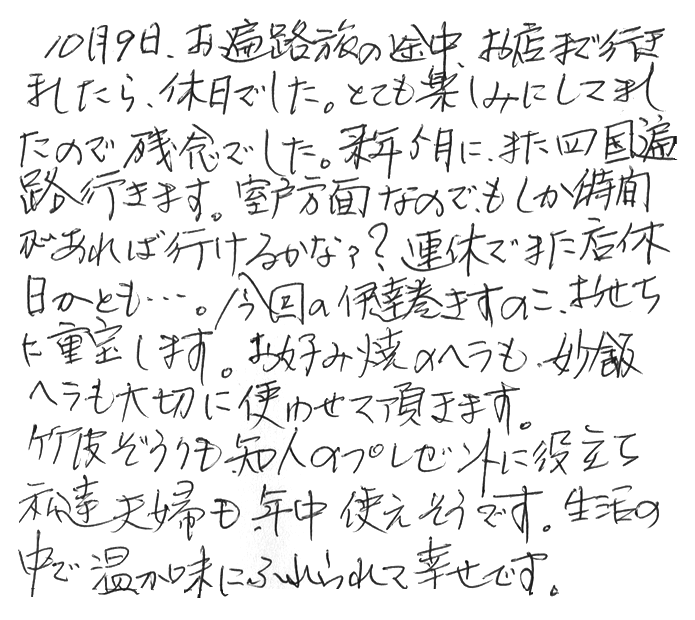 10月9日、お遍路旅の途中、お店まで行き
ましたら、休日でした。とても楽しみにしてまし
たので残念でした。来年5月に、また四国遍
路行きます。室戸方面なので、もしか時間
があれば行けるかなァ?連休でまた店休
日かとも…。今回の伊達巻きすのこ、おせち
に重宝します。お好み焼のヘラも、炒飯
ヘラも大切に使わせて頂きます。
竹皮ぞうりも知人のプレゼントに役立ち
私達夫婦も年中使えそうです。生活の
中で温か味にふれられて幸せです。